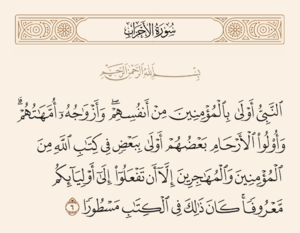 سُورَةُ الأَحْزَابِ
بِسْمِ اللَّهِ الرَّحْمَٰنِ الرَّحِيمِ
النَّبِيُّ أَوْلَىٰ بِالْمُؤْمِنِينَ مِنْ أَنفُسِهِمْ ۖ وَأَزْوَاجُهُ أُمَّهَاتُهُمْ ۗ
وَأُولُوا الْأَرْحَامِ بَعْضُهُمْ أَوْلَىٰ بِبَعْضٍ فِي كِتَابِ اللَّهِ مِنَ
الْمُؤْمِنِينَ وَالْمُهَاجِرِينَ إِلَّا أَن تَفْعَلُوا إِلَىٰ أَوْلِيَائِكُم
مَّعْرُوفًا ۚ كَانَ ذَٰلِكَ فِي الْكِتَابِ مَسْطُورًا ٦